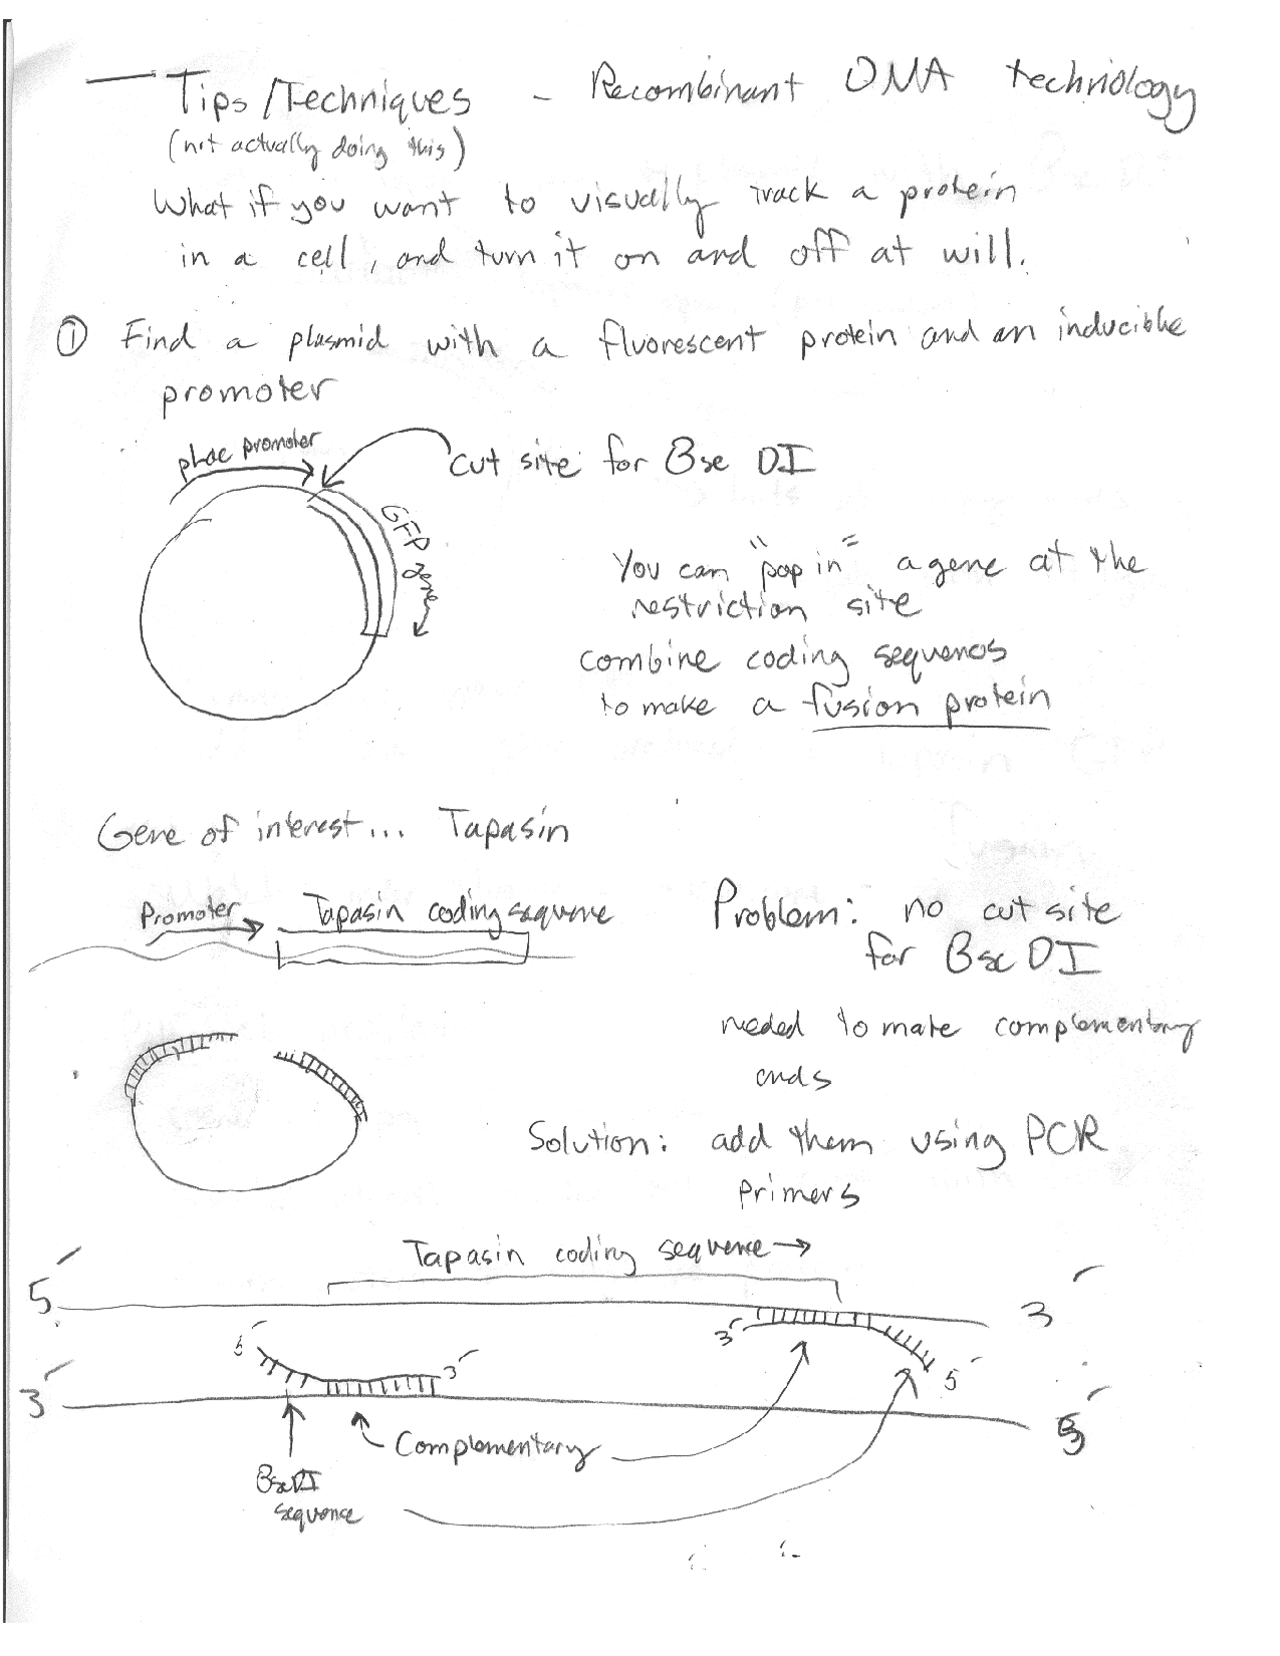 Tips/Techniques - Recombinant DNA technology
(not actually doing this)
What if you want to visually track a protein
in a cell, and turn it on and off at will.
① Find a plasmid with a fluorescent protein and an inducible
promoter
promoter
cut site for Bse DI
GFP gene
You can "pop in" a gene at the
restriction site
combine coding sequences
to make a fusion protein
Gene of interest... Tapasin
Promoter
Tapasin coding sequence
Problem: no cut site
for Bse DI
needed to make complementary
ends
Solution: add them using PCR
primers
Tapasin coding sequence →
5´
3´
3´
5´
5´
3´
5´
3´
5´
Complementary
BseDI
sequence